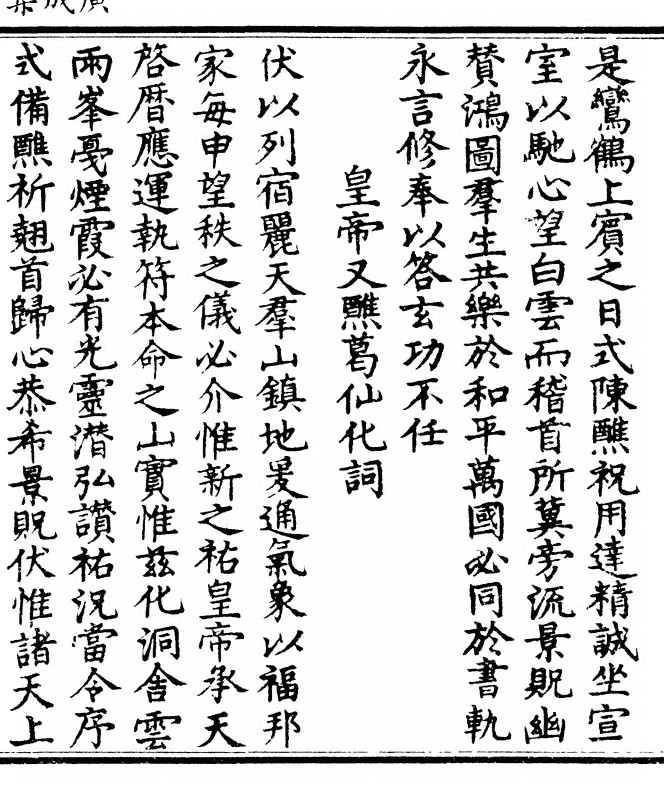 廣成集
是鸞鶴上賓之日式陳醮祝用達精誠坐宣
室以馳心望白雲而稽首所冀旁流景貺幽
贊鴻圖羣生共樂於和平萬國必同於書軌
永言修奉以答玄功不任
皇帝又醮葛仙化詞
伏以列宿麗天羣山鎮地爰通氣象以福邦
家每申望秩之儀必介惟新之祐皇帝承天
啓曆應運執符本命之山實惟茲化洞舍雲
雨峯戞煙霞必有光靈潛弘讚祐況當令序
式備醮祈翹首歸心恭希景貺伏惟諸天上